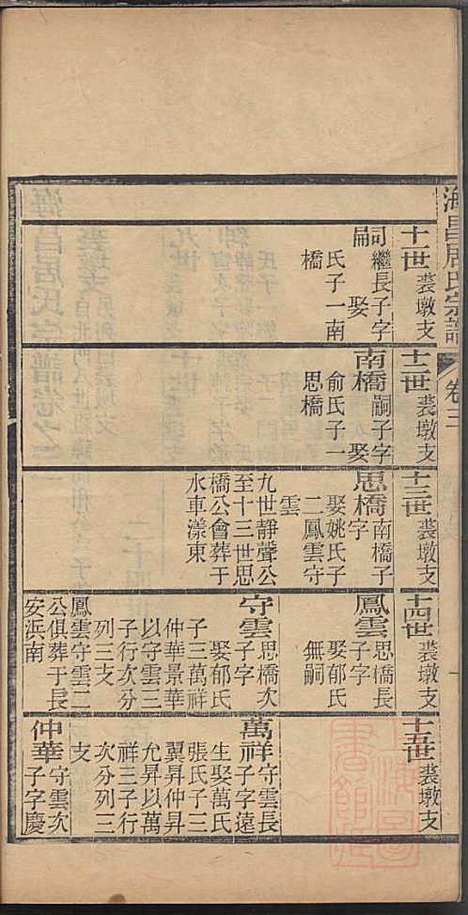 海昌周氏宗譜
卷三
十一世 裘墩支
司 繼長子字
扁 娶
氏子一南
橋
十二世 裘墩支
南橋 嗣子字
娶
俞氏子一
思橋
十三世 裘墩支
思橋 南橋子
字
娶姚氏子
二鳳雲守
雲
九世靜聲公
至十三世思
橋公會葬于
水車漾東
十四世 裘墩支
鳳雲 思橋長
子字
娶郁氏
無嗣
守雲 思橋次
子字
娶郁氏
子三萬祥
仲華景華
以守雲三
子行次分
列三支
鳳雲守雲二
公俱葬于長
安浜南
十五世 裘墩支
萬祥 守雲長
子字遠
生娶萬氏
張氏子三
翼昇仲昇
允昇以萬
祥三子行
次分列三
支
仲華 守雲次
子字慶